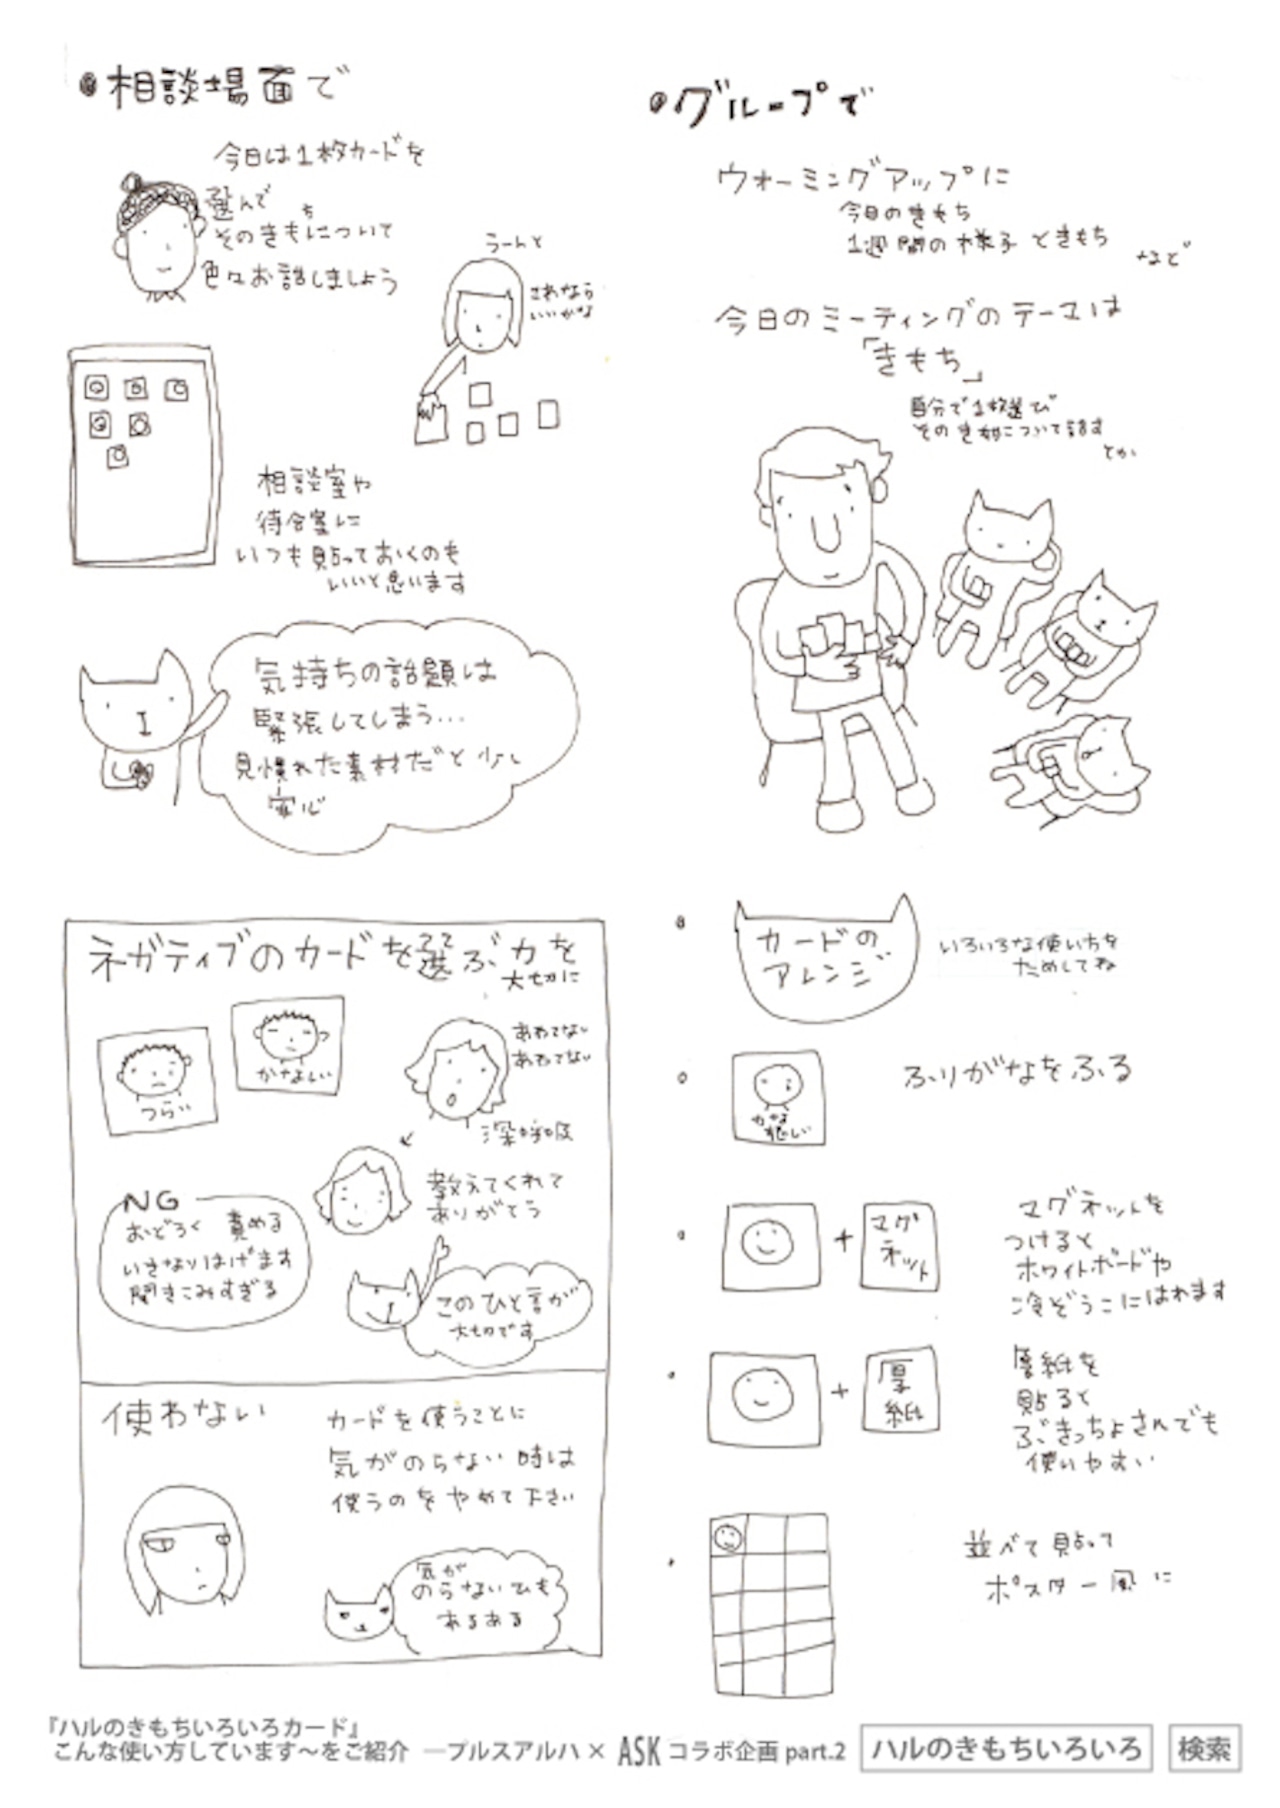 ●相談場面で
今日は1枚カードを
選んで
そのきもちについて
色々お話しましょう
うーんと
これなら
いいかな
相談室や
待合室に
いつも貼っておくのも
いいと思います
気持ちの話題は
緊張してしまう…
見慣れた素材だと少し
安心
●グループで
ウォーミングアップに
今日のきもち
1週間の様子ときもち
など
今日のミーティングのテーマは
「きもち」
自分で1枚選び
そのきもちについて話す
とか
ネガティブのカードを選ぶ力を
大切に
つらい
かなしい
あわてない
あわてない
深呼吸
教えてくれて
ありがとう
NG
おどろく 責める
いきなりはげます
聞きこみすぎる
このひと言が
大切です
使わない
カードを使うことに
気がのらない時は
使うのをやめて下さい
気が
のらないひも
あるある
カードの
アレンジ
いろいろな使い方を
ためしてね
かな
悲しい
ふりがなをふる
+
マグ
ネット
マグネットを
つけると
ホワイトボードや
冷ぞうこにはれます
+
厚
紙
厚紙を
貼ると
ぶきっちょさんでも
使いやすい
並べて貼って
ポスター風に
『ハルのきもちいろいろカード』
こんな使い方しています〜をご紹介 ―プルスアルハ × ASK コラボ企画 part.2 ハルのきもちいろいろ 検索